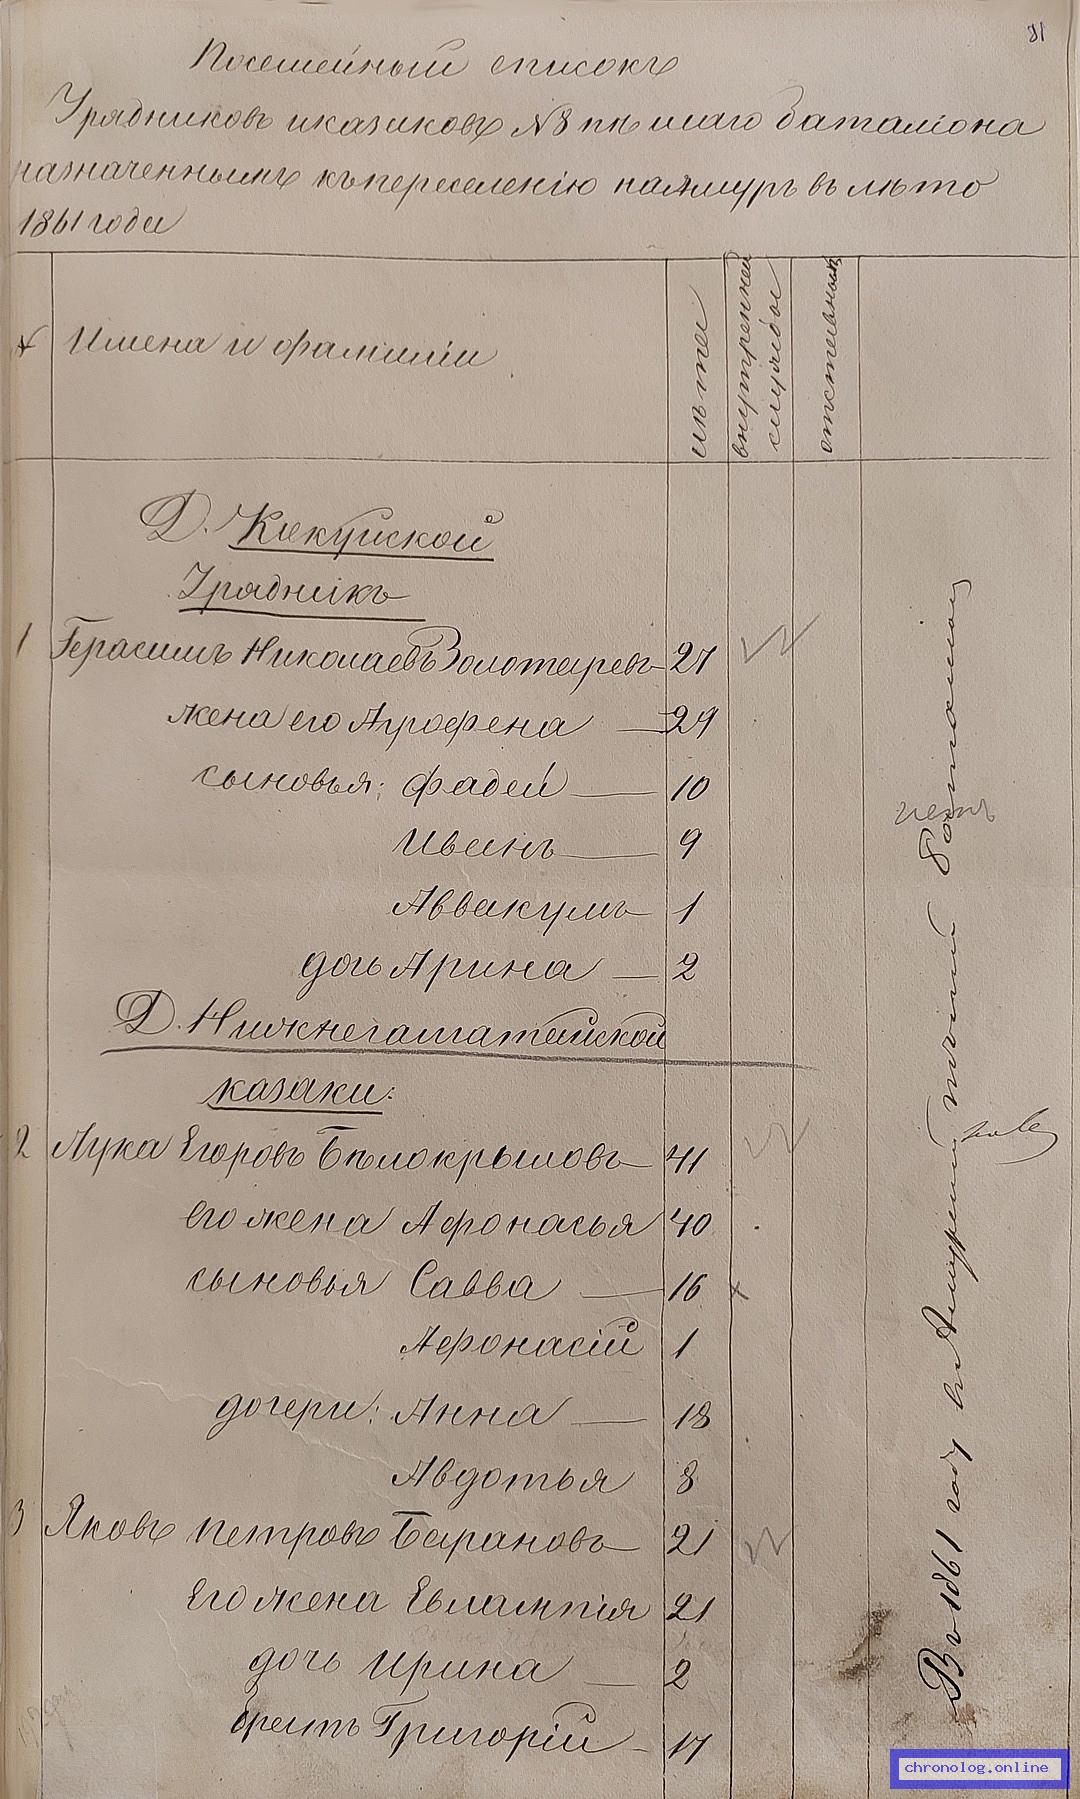 81
Посемейный списокъ
Урядниковъ и казаковъ №8 пѣшаго баталіона
назначеннымъ къ переселенію на Амуръ въ лѣто
1861 года
Имена и фамиліи
лѣта
внутренней
службы
отставныхъ
Д. Кокуйской
Урядникъ
1 Герасимъ Николаевъ Золотаревъ 27
жена его Агрофена 29
сыновья: Фадей 10
Иванъ 9
Аввакумъ 1
дочь Арина 2
Д. Нижнегамагайской
казаки:
2 Лука Егоровъ Бѣлокрыловъ 41
его жена Афонасья 40
сыновья Савва 16
Афонасій 1
дочери: Анна 18
Авдотья 8
3 Яковъ Петровъ Барановъ 21
Его жена Евлампія 21
дочь Ирина 2
братъ Григорій 17
Въ 1861 году въ Амурский пѣший баталионъ
chronolog.online